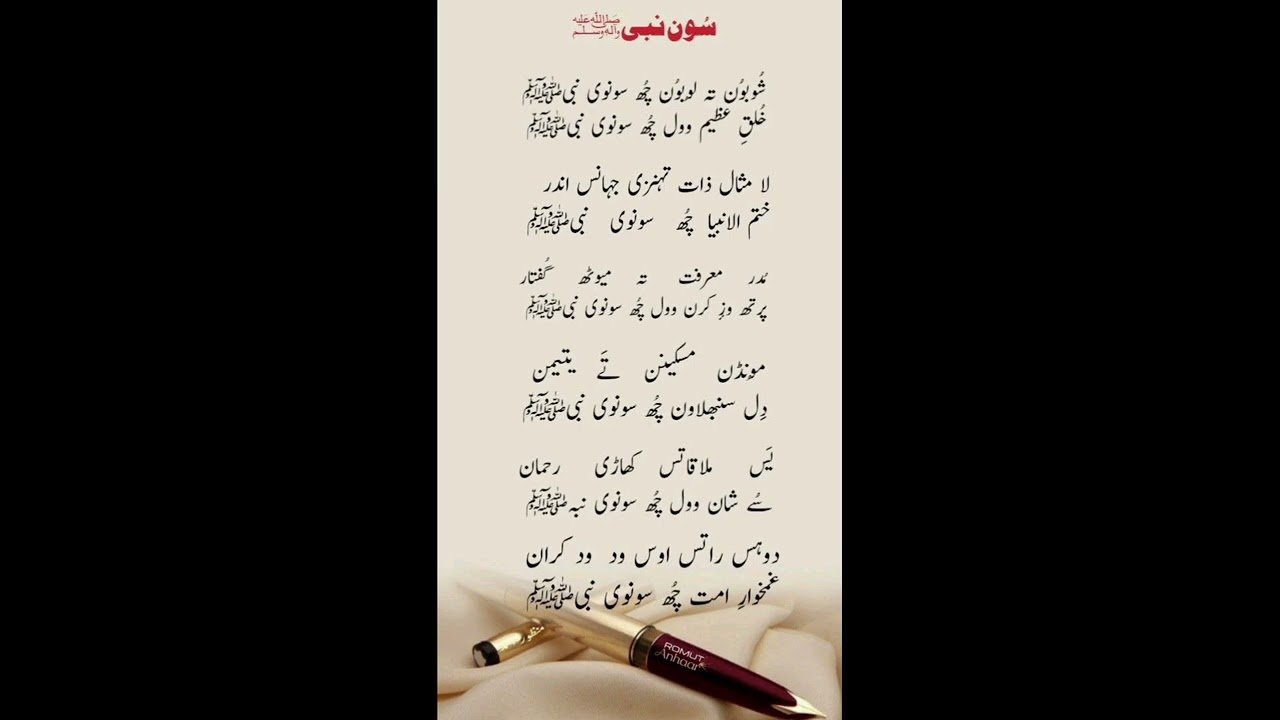 سُون نبی صلی اللہ علیہ وآلہ وسلم
شُوبوُن تہ لوٚبوُن چُھ سونوی نبیﷺ
خُلقِ عظیم وول چُھ سونوی نبیﷺ
لا مثال ذات تہنزی جہانس اندر
ختم الانبیا چُھ سونوی نبیﷺ
مُدر معرفت تہ میوٹھ گُفتار
پرتھ وزِ کرن وول چُھ سونوی نبیﷺ
مونڈن مسکینن تَے یتیمن
دِل سنبھلاون چُھ سونوی نبیﷺ
یَس ملاقاتس کھاڑی رحمان
سُے شان وول چُھ سونوی نبہﷺ
دوہس راتس اوس ود ود کران
غمخوارِ امت چُھ سونوی نبیﷺ
منظور
ROMUT
Anhaar